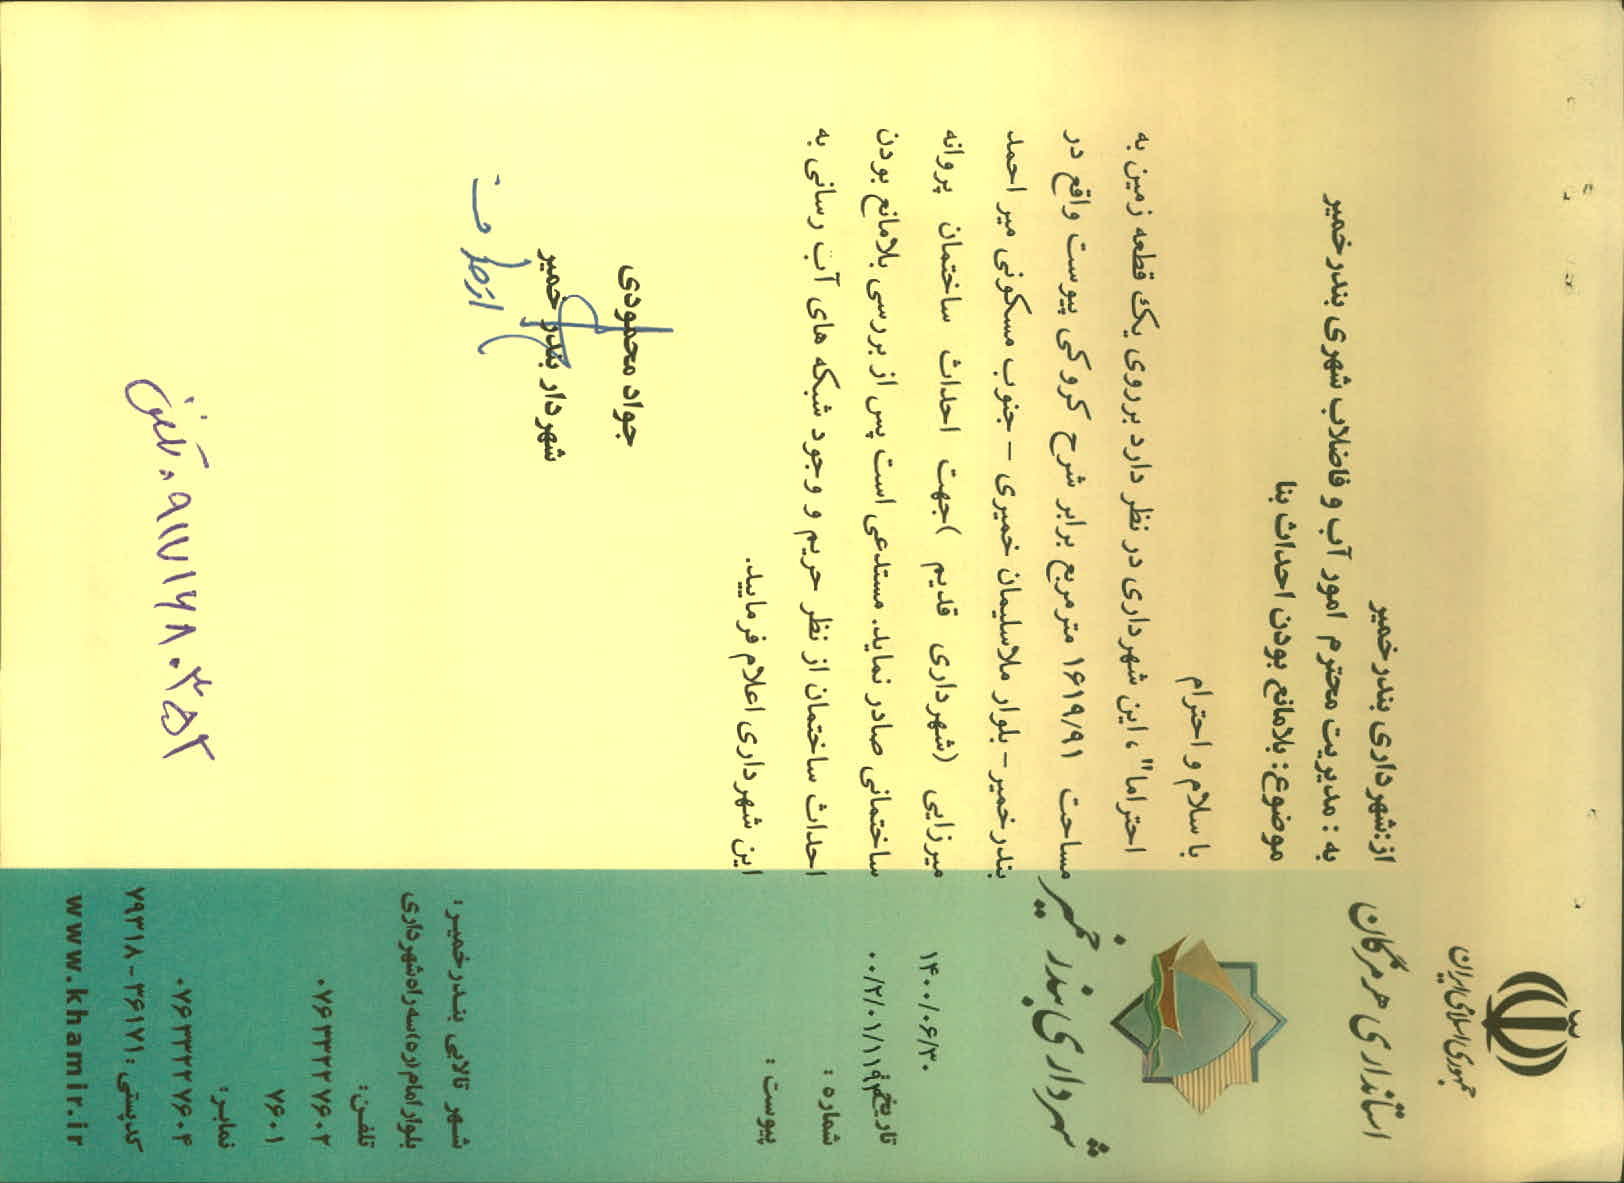 جمهوری اسلامی ایران
استانداری هرمزگان
شهرداری بندر خمیر
۱۴۰۰/۰۶/۳۰
تاریخ:
۰۰/۲/۰۱/۱۱۹۴
شماره :
پیوست :
از:شهرداری بندرخمیر
به : مدیریت محترم امور آب و فاضلاب شهری بندرخمیر
موضوع: بلامانع بودن احداث بنا
با سلام و احترام
احتراما" ، این شهرداری در نظر دارد برروی یک قطعه زمین به
مساحت ۱۶۱۹/۹۱ مترمربع برابر شرح کروکی پیوست واقع در
بندرخمیر- بلوار ملاسلیمان خمیری – جنوب مسکونی میر احمد
میرزایی (شهرداری قدیم )جهت احداث ساختمان پروانه
ساختمانی صادر نماید. مستدعی است پس از بررسی بلامانع بودن
احداث ساختمان از نظر حریم و وجود شبکه های آب رسانی به
این شهرداری اعلام فرمایید.
جواد محمودی
شهردار بندر خمیر
از طرف
تلفن ۰۹۱۷۱۶۸۰۴۵۲
شهر تالابی بندرخمیر:
بلوار امام (ره) سه راه شهرداری
تلفن:
۰۷۶۳۳۲۲۷۶۰۲
۷۶۰۱
نمابر:
۰۷۶۳۳۲۲۷۶۰۴
کدپستی: ۳۶۱۷۱-۷۹۳۱۸
www.khamir.ir